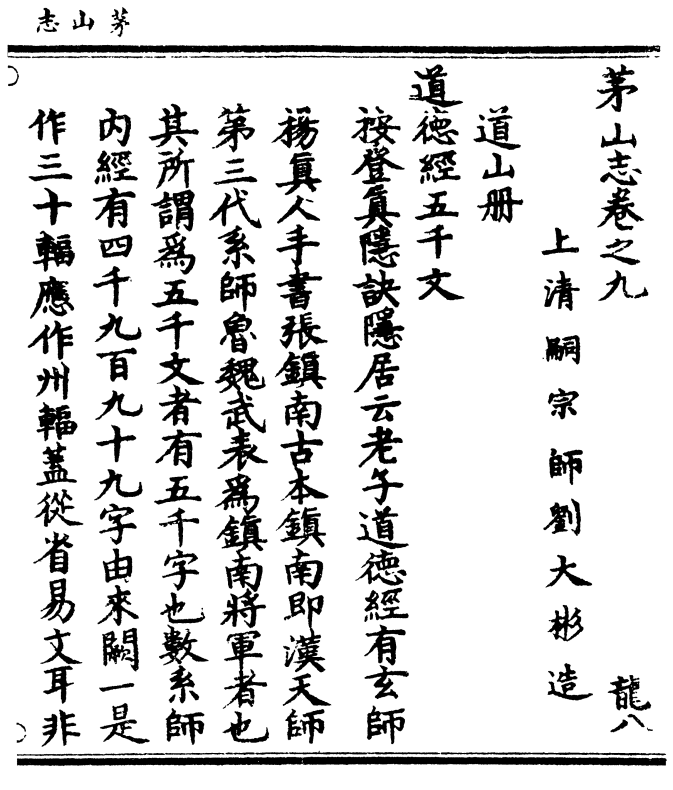 茅山志
茅山志卷之九
龍八
上清嗣宗師劉大彬造
道山册
道德經五千文
按登眞隱訣隱居云老子道德經有玄師
楊眞人手書張鎮南古本鎮南即漢天師
第三代系師魯魏武表爲鎮南將軍者也
其所謂爲五千文者有五千字也數系師
内經有四千九百九十九字由來闕一是
作三十輻應作卅輻蓋從省易文耳非